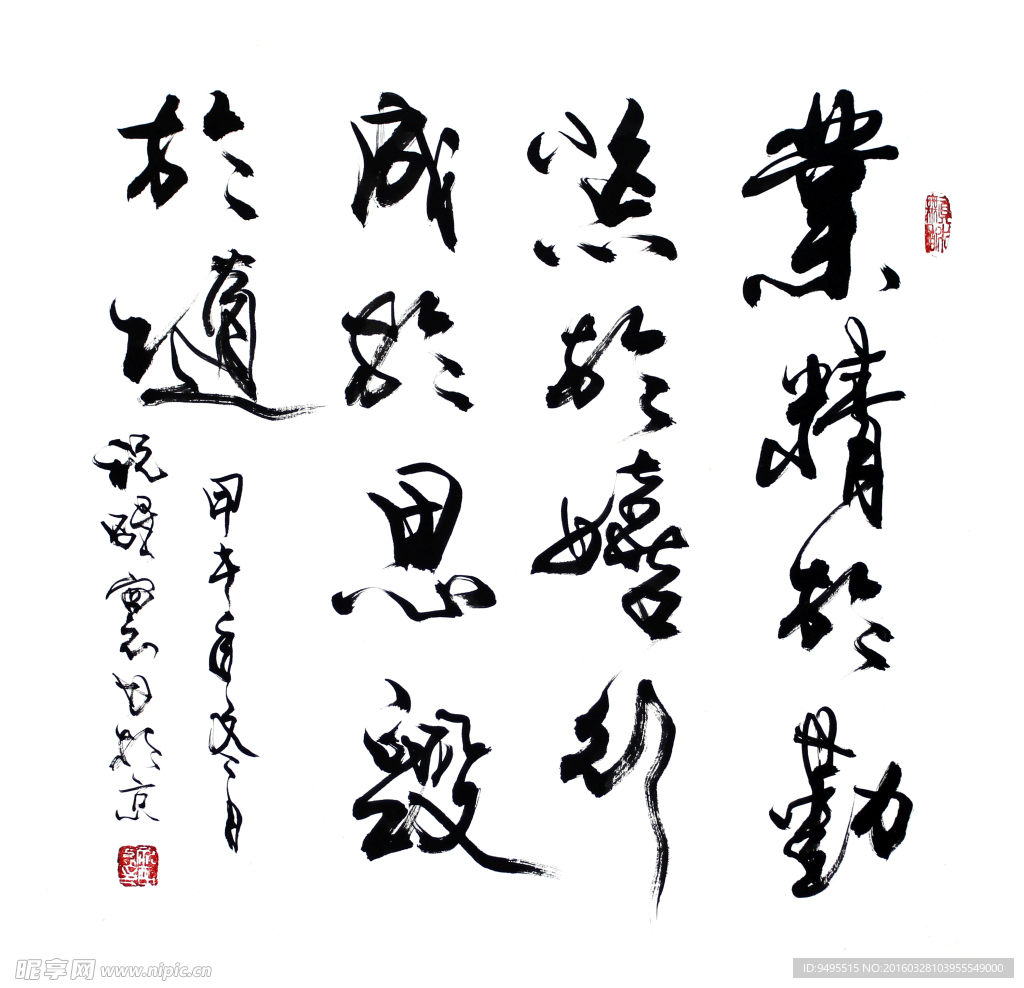 業精於勤
荒於嬉行
成於思毀
於隨
甲午冬月
祝醒於京
昵享网 www.nipic.cn
ID:9495515 NO:20160328103955549000